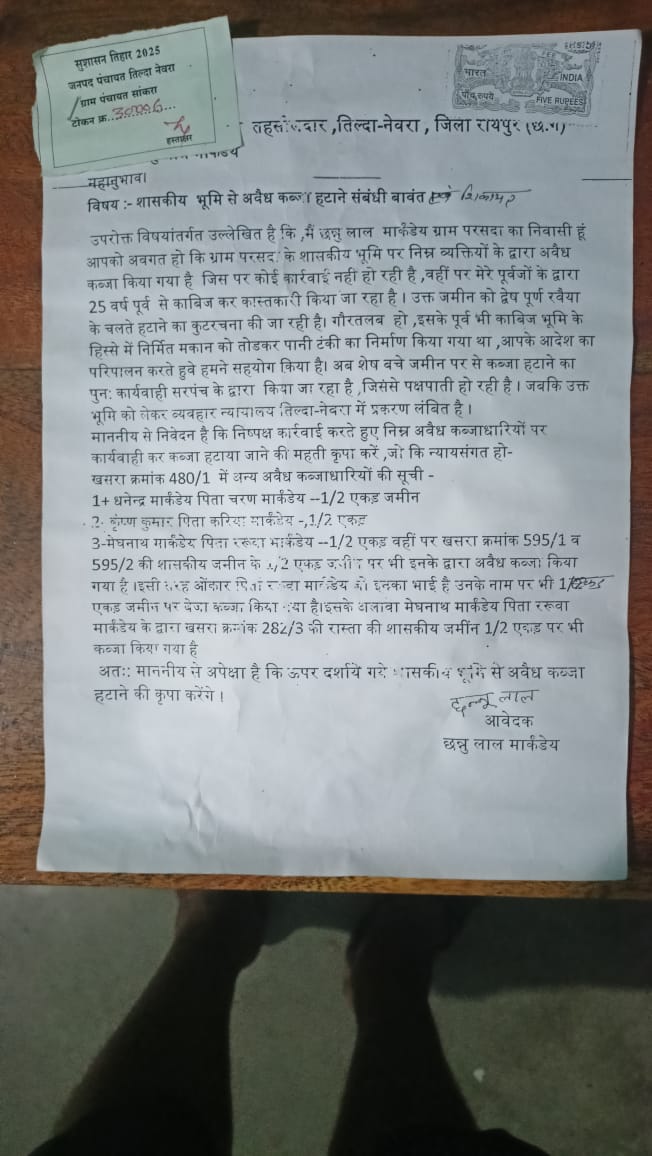 सुशासन तिहार 2025
जनपद पंचायत तिल्दा नेवरा
ग्राम पंचायत सांकरा
टोकन क्र...
हस्ताक्षर
भारत
INDIA
पाँच रुपये
FIVE RUPEES
तहसीलदार ,तिल्दा-नेवरा , जिला रायपुर (छ.ग)
महानुभाव।
विषय :- शासकीय भूमि से अवैध कब्जा हटाने संबंधी बावंत शिकायत
उपरोक्त विषयांतर्गत उल्लेखित है कि ,मैं छन्नु लाल मार्कंडेय ग्राम परसदा का निवासी हूं
आपको अवगत हो कि ग्राम परसदा के शासकीय भूमि पर निम्न व्यक्तियों के द्वारा अवैध
कब्जा किया गया है जिस पर कोई कार्रवाई नही हो रही है ,वहीं पर मेरे पूर्वजों के द्वारा
25 वर्ष पूर्व से काबिज कर कास्तकारी किया जा रहा है । उक्त जमीन को द्वेष पूर्ण रवैया
के चलते हटाने का कुटरचना की जा रही है। गौरतलब हो ,इसके पूर्व भी काबिज भूमि के
हिस्से में निर्मित मकान को तोडकर पानी टंकी का निर्माण किया गया था ,आपके आदेश का
परिपालन करते हुवे हमने सहयोग किया है। अब शेष बचे जमीन पर से कब्जा हटाने का
पुन: कार्यवाही सरपंच के द्वारा किया जा रहा है ,जिससे पक्षपाती हो रही है । जबकि उक्त
भूमि को लेकर व्यवहार न्यायालय तिल्दा-नेवरा में प्रकरण लंबित है ।
माननीय से निवेदन है कि निष्पक्ष कार्रवाई करते हुए निम्न अवैध कब्जाधारियों पर
कार्यवाही कर कब्जा हटाया जाने की महती कृपा करें ,जो कि न्यायसंगत हो-
खसरा क्रमांक 480/1 में अन्य अवैध कब्जाधारियों की सूची -
1+ धनेन्द्र मार्कंडेय पिता चरण मार्कंडेय --1/2 एकड़ जमीन
2- कृष्ण कुमार पिता करिया मार्कंडेय -,1/2 एकड़
3-मेघनाथ मार्कंडेय पिता ररूवा मार्कंडेय --1/2 एकड़ वहीं पर खसरा क्रमांक 595/1 व
595/2 की शासकीय जमीन के 1/2 एकड़ जमीन पर भी इनके द्वारा अवैध कब्जा किया
गया है ।इसी तरह ओंकार पिता ररूवा मार्कंडेय जो इनका भाई है उनके नाम पर भी
एकड़ जमीन पर बेजा कब्जा किया गया है।इसके अलावा मेघनाथ मार्कंडेय पिता ररूवा
मार्कंडेय के द्वारा खसरा क्रमांक 282/3 की रास्ता की शासकीय जमींन 1/2 एकड़ पर भी
कब्जा किया गया है
अतः: माननीय से अपेक्षा है कि ऊपर दर्शाये गये शासकीय भूमि से अवैध कब्जा
हटाने की कृपा करेंगे ।
छन्नू लाल
आवेदक
छन्नु लाल मार्कंडेय